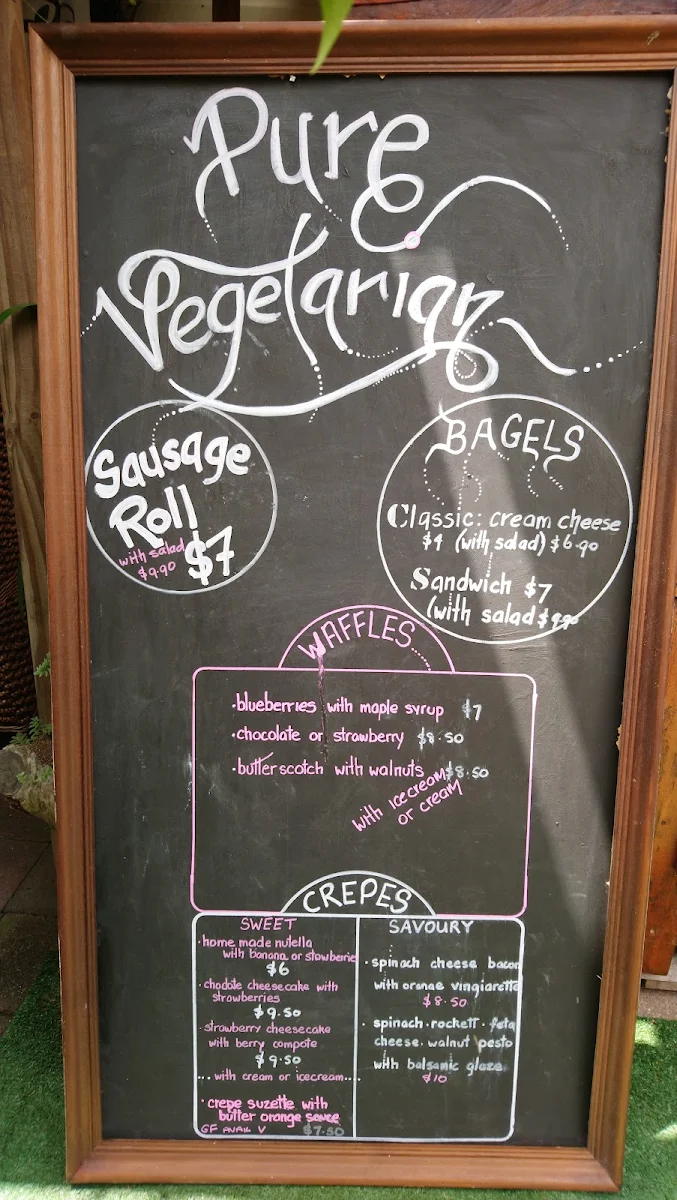 Pure
Vegetarian
Sausage
Roll
with salad
$9.90
$7
BAGELS
Classic: cream cheese
$4 (with salad) $6.90
Sandwich $7
(with salad $9.90
WAFFLES
·blueberries with maple syrup $7
·chocolate or strawberry $8.50
·butterscotch with walnuts $8.50
with icecream
or cream
CREPES
SWEET
·home made nutella
with banana or stowberie
$6
·chodate cheesecake with
strowberries
$9.50
·strawberry cheesecake
with berry compote
$9.50
...with cream or icecream....
·crepe suzette with
butter orange sauce
GF AVAIL V $7.50
SAVOURY
·spinach cheese bacon
with orange vingiarette
$8.50
·spinach·rockett·feta
cheese·walnut pesto
with balsamic glaze
$10